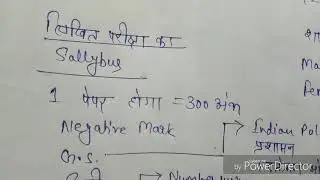 लिखित परीक्षा का
Sallybus
1 पेपर होगा = 300 अंक
Negative Mark
Indian Pol
प्रशासन
G.S.
Ma
Per
by PowerDirector